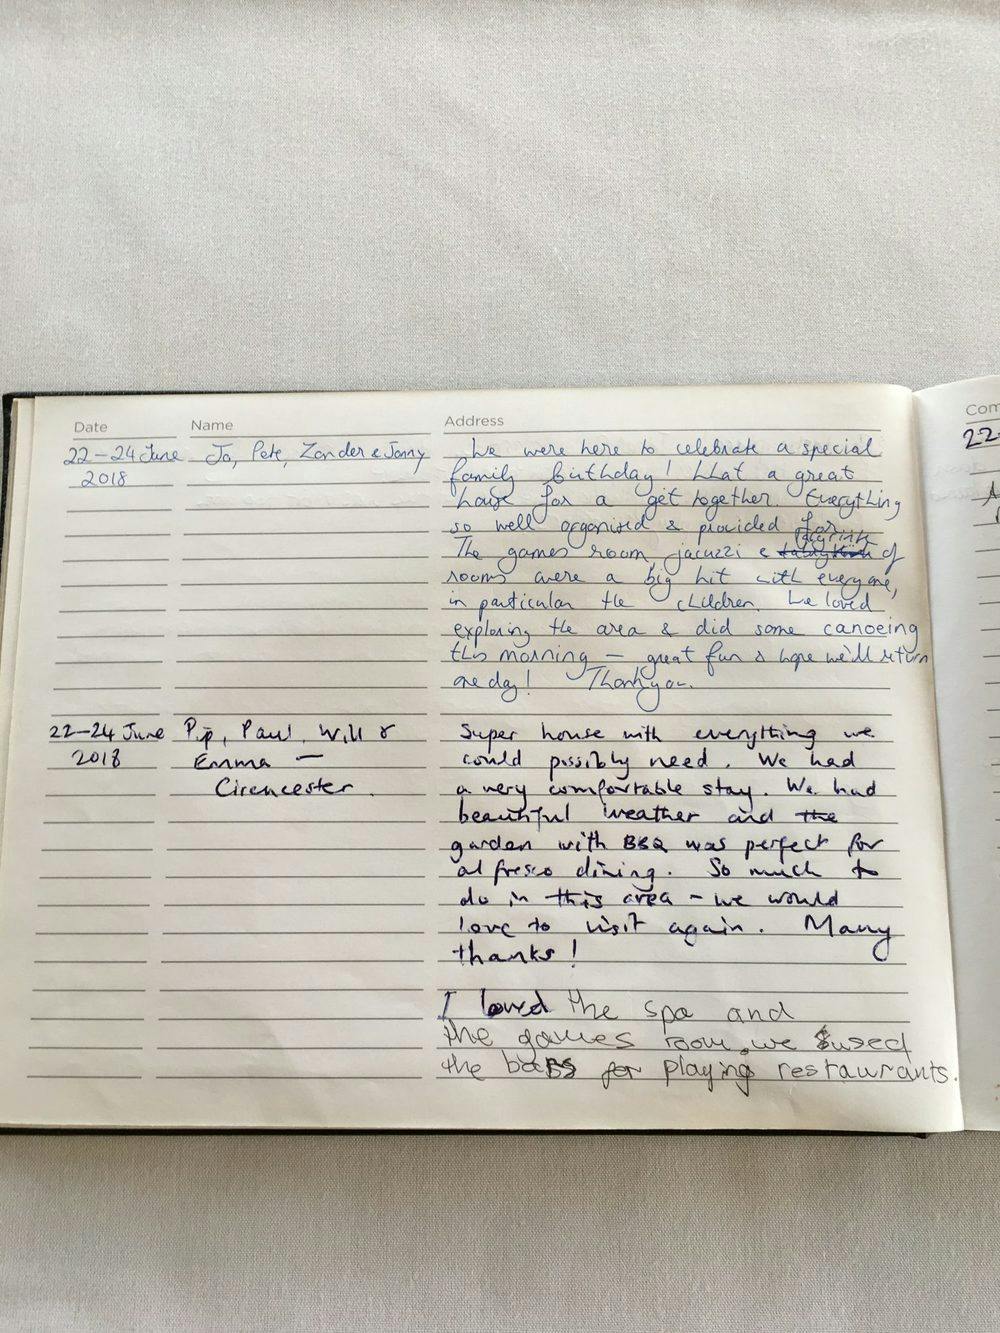 Date Name Address
22-24 June Jo, Pete, Zander & Jonny We were here to celebrate a special
2018 family birthday! What a great
house for a get together. Everything
so well organised & provided for.
The games room, jacuzzi & labyrinth of
rooms were a big hit with everyone,
in particular the children. We loved
exploring the area & did some canoeing
this morning - great fun & hope we'll return
one day! Thankyou.
22-24 June Pip, Paul, Will & Super house with everything we
2018 Emma - could possibly need. We had
Cirencester. a very comfortable stay. We had
beautiful weather and the
garden with BBQ was perfect for
al fresco dining. So much to
do in this area - we would
love to visit again. Many
thanks!
I loved the spa and
the games room. we used
the for playing restaurants.
Com
22-